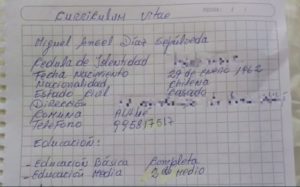 Curriculum Vitae
Miguel Angel Díaz Sepúlveda
Cedula de Identidad
Fecha Nacimiento 29 de enero 1962
Nacionalidad Chilena
Estado Civil Casado
Dirección
Comuna
Telefono 995817517
Educación:
- Educación Básica Completa
- Educación Media 2 do Medio